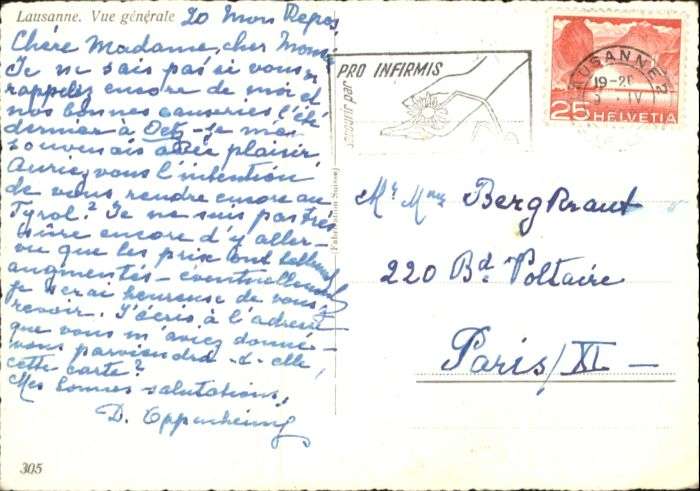 Lausanne. Vue générale
20 Mon Repos
Chère Madame, cher Mons.
Je ne sais pas si vous
rappelez encore de moi et
nos bonnes causeries l'été
dernier à Oetz - je m'en
souvenais avec plaisir,
Auriez vous l'intention
de vous rendre encore au
Tyrol? Je ne suis pas très
sûre encore d'y aller -
vu que les prix ont tellement
augmentés - éventuellement
je serai heureuse de vous
revoir. J'écris à l'adresse
que vous m'aviez donné -
vous parviendra-t-elle,
cette carte?
Mes bonnes salutations,
D. Oppenheimer
305
PRO INFIRMIS
LAUSANNE 2
19-20
IV
25
HELVETIA
Mr Mme BergKraut
220 Bd. Voltaire
Paris/XI -